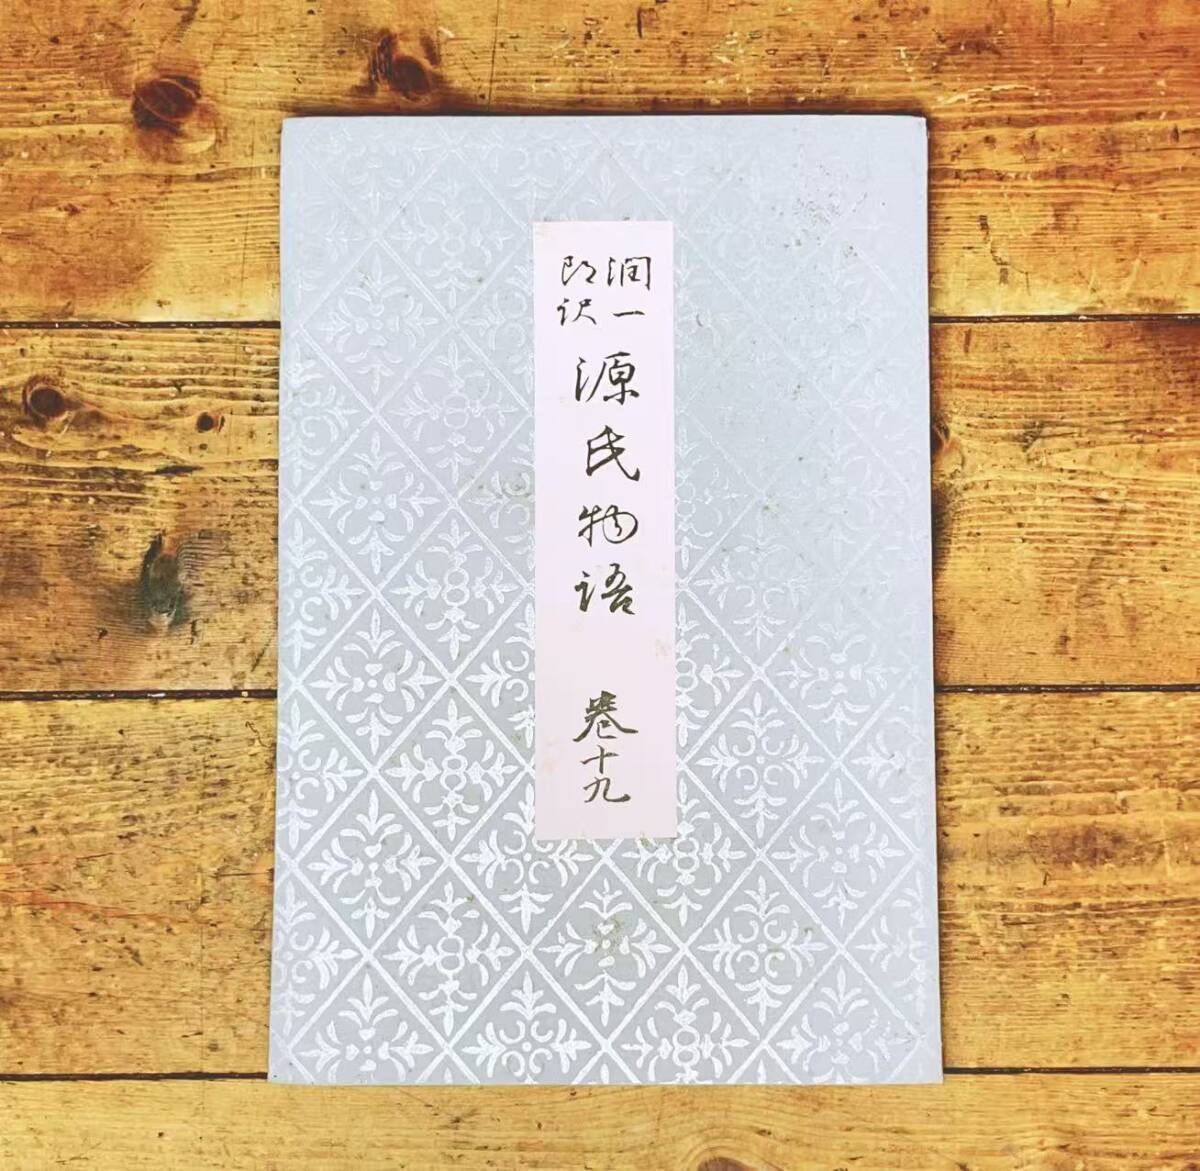 潤一
郎訳
源氏物語
巻十九